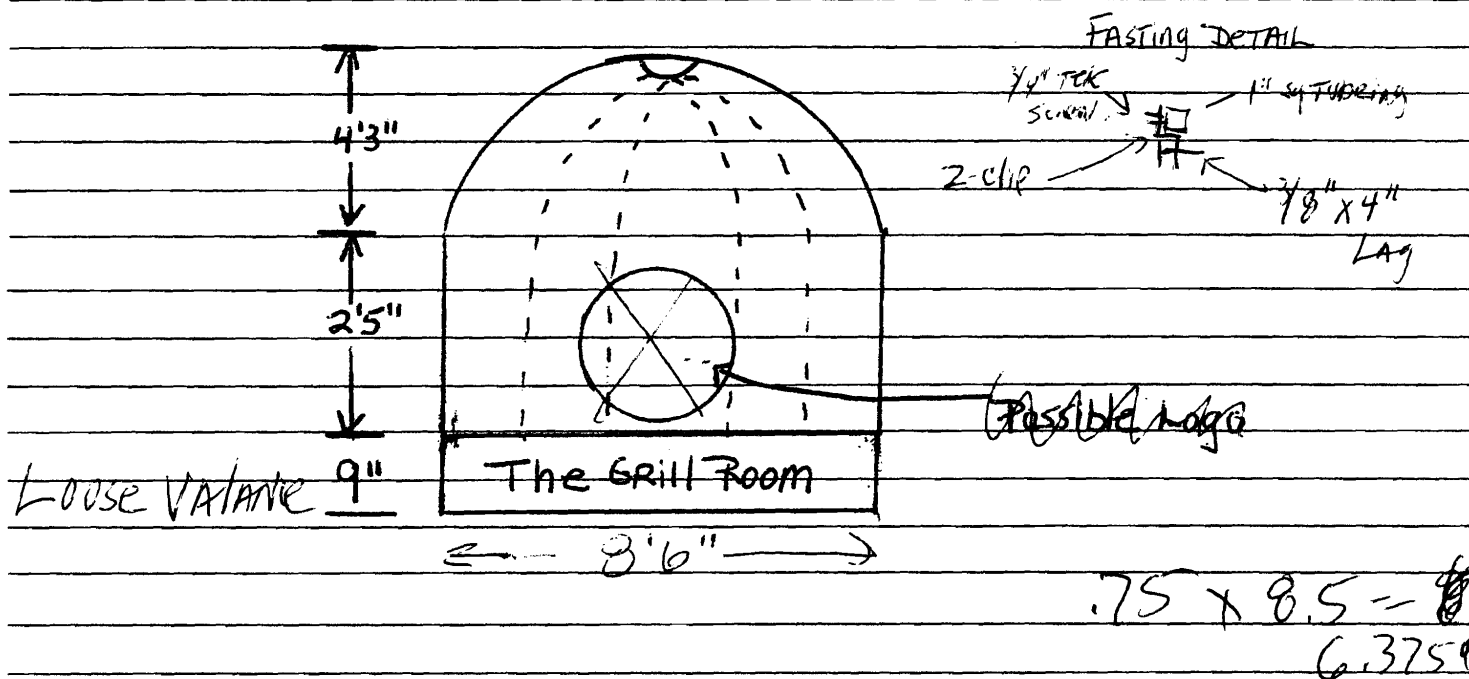 FASTING DETAIL
3/4" TEK
SCREW
1" SQ TUBEING
Z-clip
3/8" X 4"
LAG
4'3"
2'5"
Possible Logo
9"
LOOSE VALANCE
The GRill Room
8'6"
.75 x 8.5 =
6.375